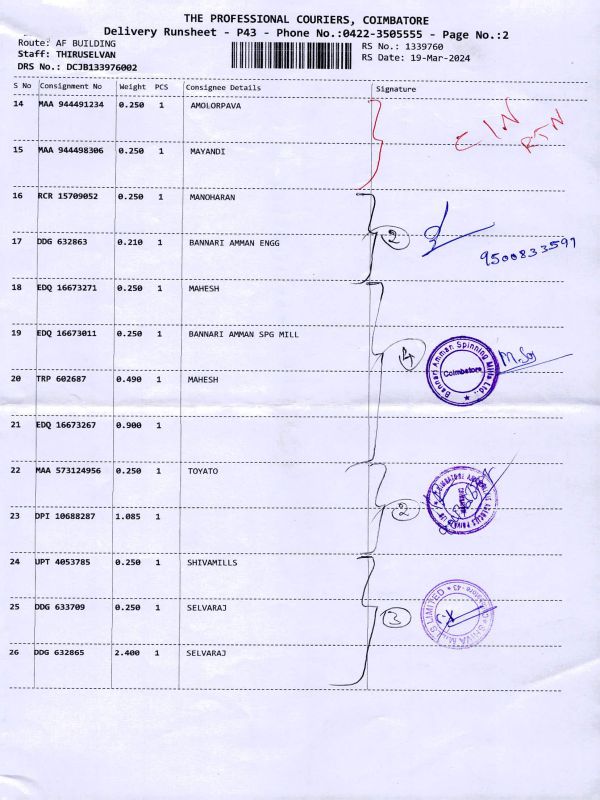 THE PROFESSIONAL COURIERS, COIMBATORE
Delivery Runsheet - P43 - Phone No.:0422-3505555 - Page No.:2
Route: AF BUILDING
RS No.: 1339760
Staff: THIRUSELVAN
RS Date: 19-Mar-2024
DRS No.: DCJB133976002
S No Consignment No Weight PCS Consignee Details Signature
14 MAA 944491234 0.250 1 AMOLORPAVA
RTN
15 MAA 944498306 0.250 1 MAYANDI
16 RCR 15709052 0.250 1 MANOHARAN
2
17 DDG 632863 0.210 1 BANNARI AMMAN ENGG
9500833591
18 EDQ 16673271 0.250 1 MAHESH
19 EDQ 16673011 0.250 1 BANNARI AMMAN SPG MILL
4
Bannari Amman Spinning Mills Ltd.
Coimbatore
20 TRP 602687 0.490 1 MAHESH
21 EDQ 16673267 0.900 1
22 MAA 573124956 0.250 1 TOYATO
2
23 DPI 10688287 1.085 1
24 UPT 4053785 0.250 1 SHIVAMILLS
25 DDG 633709 0.250 1 SELVARAJ
3
SHIVA MILLS LIMITED
26 DDG 632865 2.400 1 SELVARAJ